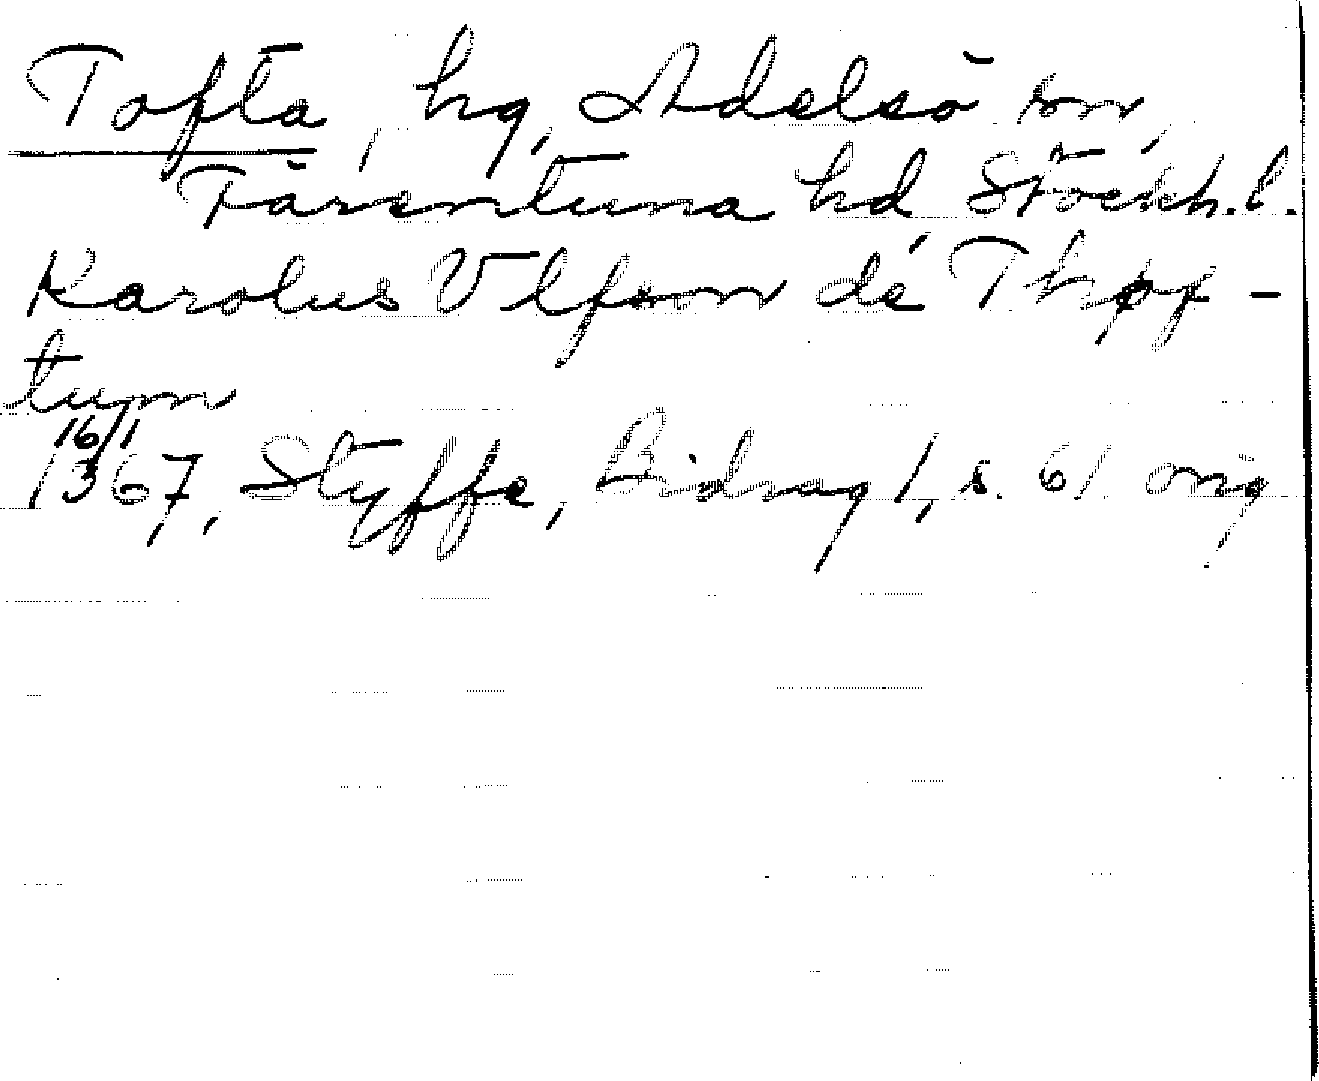 Tofta, hg, Adelsö sn,
Färentuna hd Stockh. l.
Karolus Vlfson de Thof-
tum
16/1
1367, Styffe, Bidrag 1, s. 61 orig